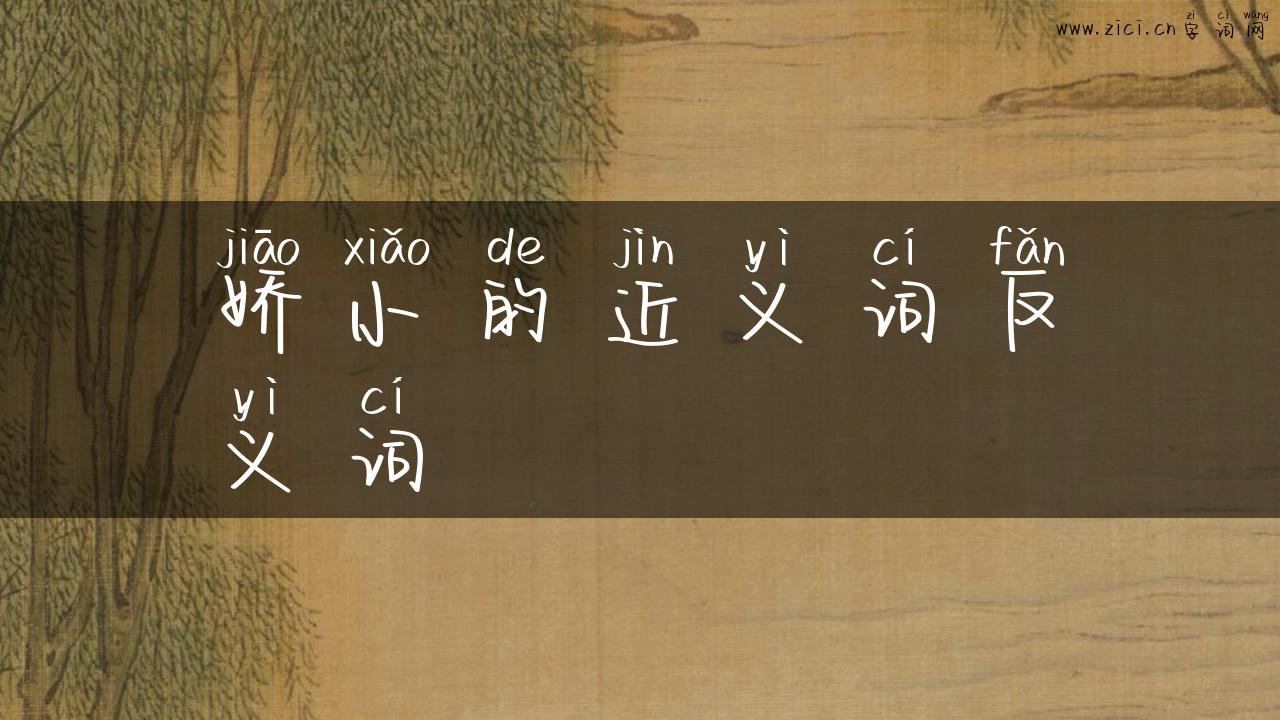 zì cí wǎng
www.zici.cn 字 词 网
jiāo xiǎo de jìn yì cí fǎn
娇 小 的 近 义 词 反
yì cí
义 词